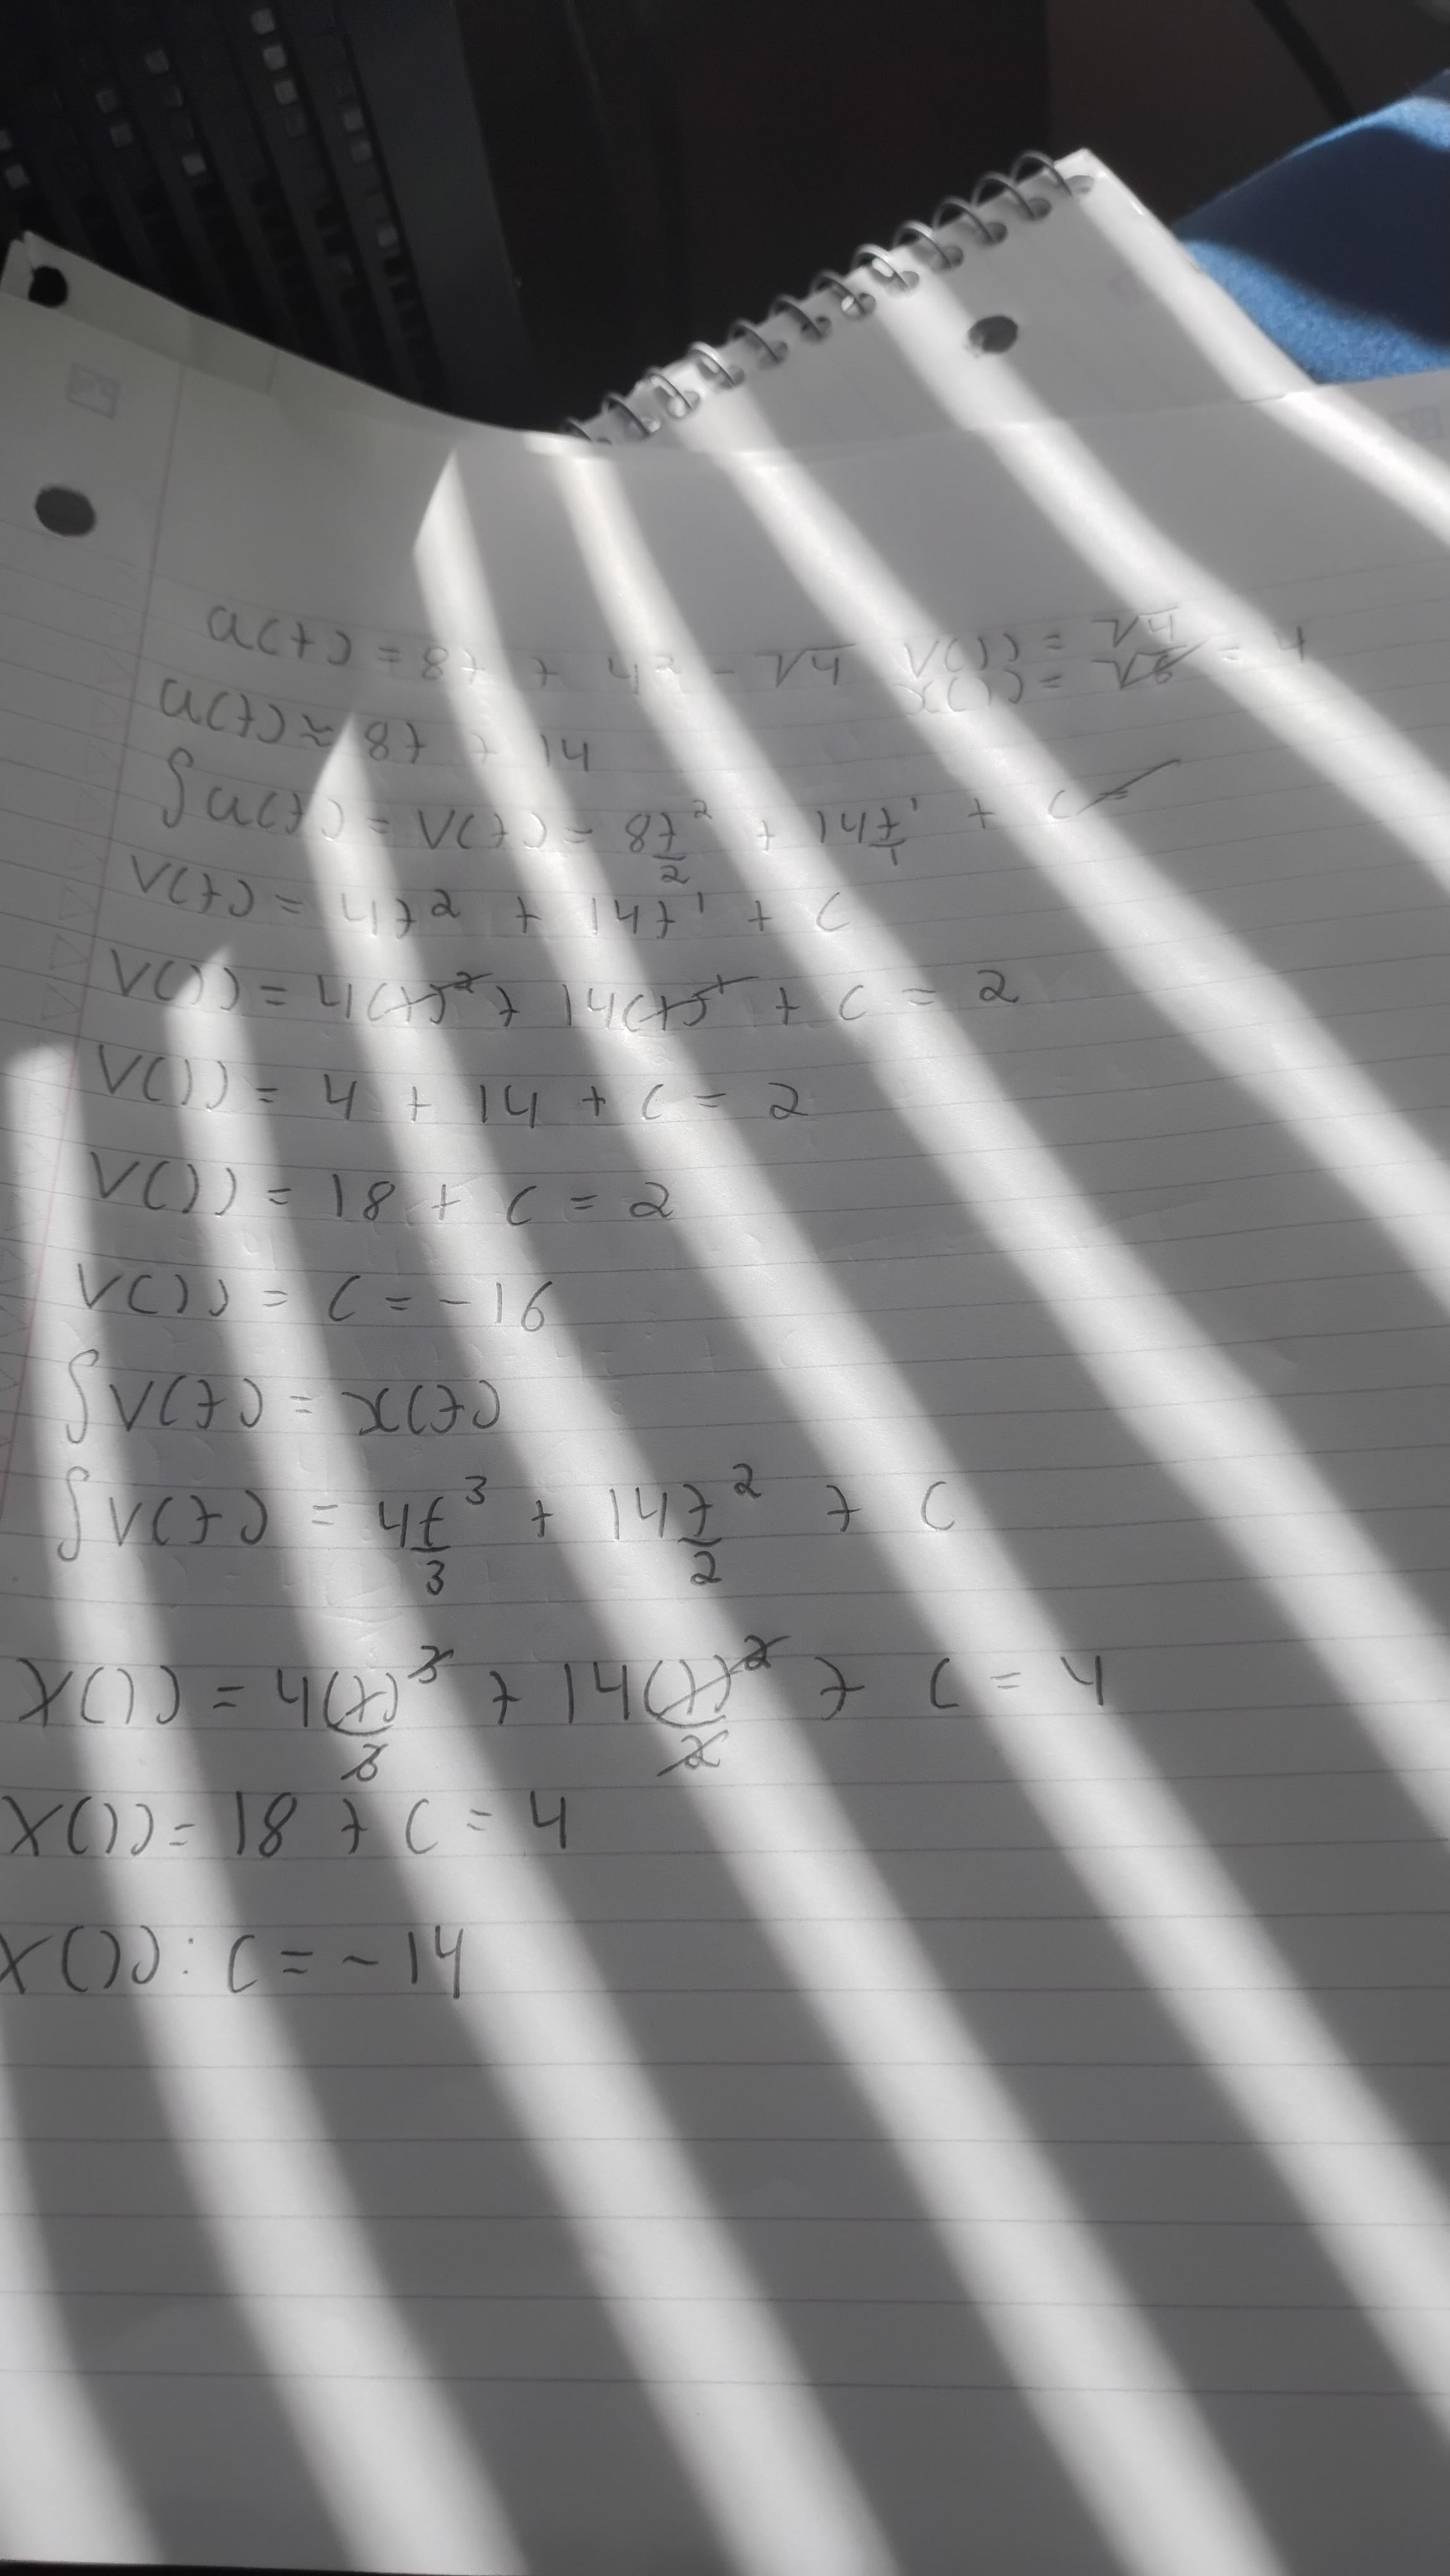 a(t) = 8t + 4² - √4 V(1) = √4
x(1) = = 4
a(t) ≈ 8t + 14
∫a(t) = V(t) = 8t²/2 + 14t¹/1 + C
V(t) = 4t² + 14t¹ + C
V(1) = 4(t)² + 14(t)¹ + C = 2
V(1) = 4 + 14 + C = 2
V(1) = 18 + C = 2
V(1) = C = -16
∫V(t) = x(t)
∫V(t) = 4t³/3 + 14t²/2 + C
X(1) = 4(1)³/3 + 14(1)²/2 + C = 4
X(1) = 18 + C = 4
X(1): C = -14